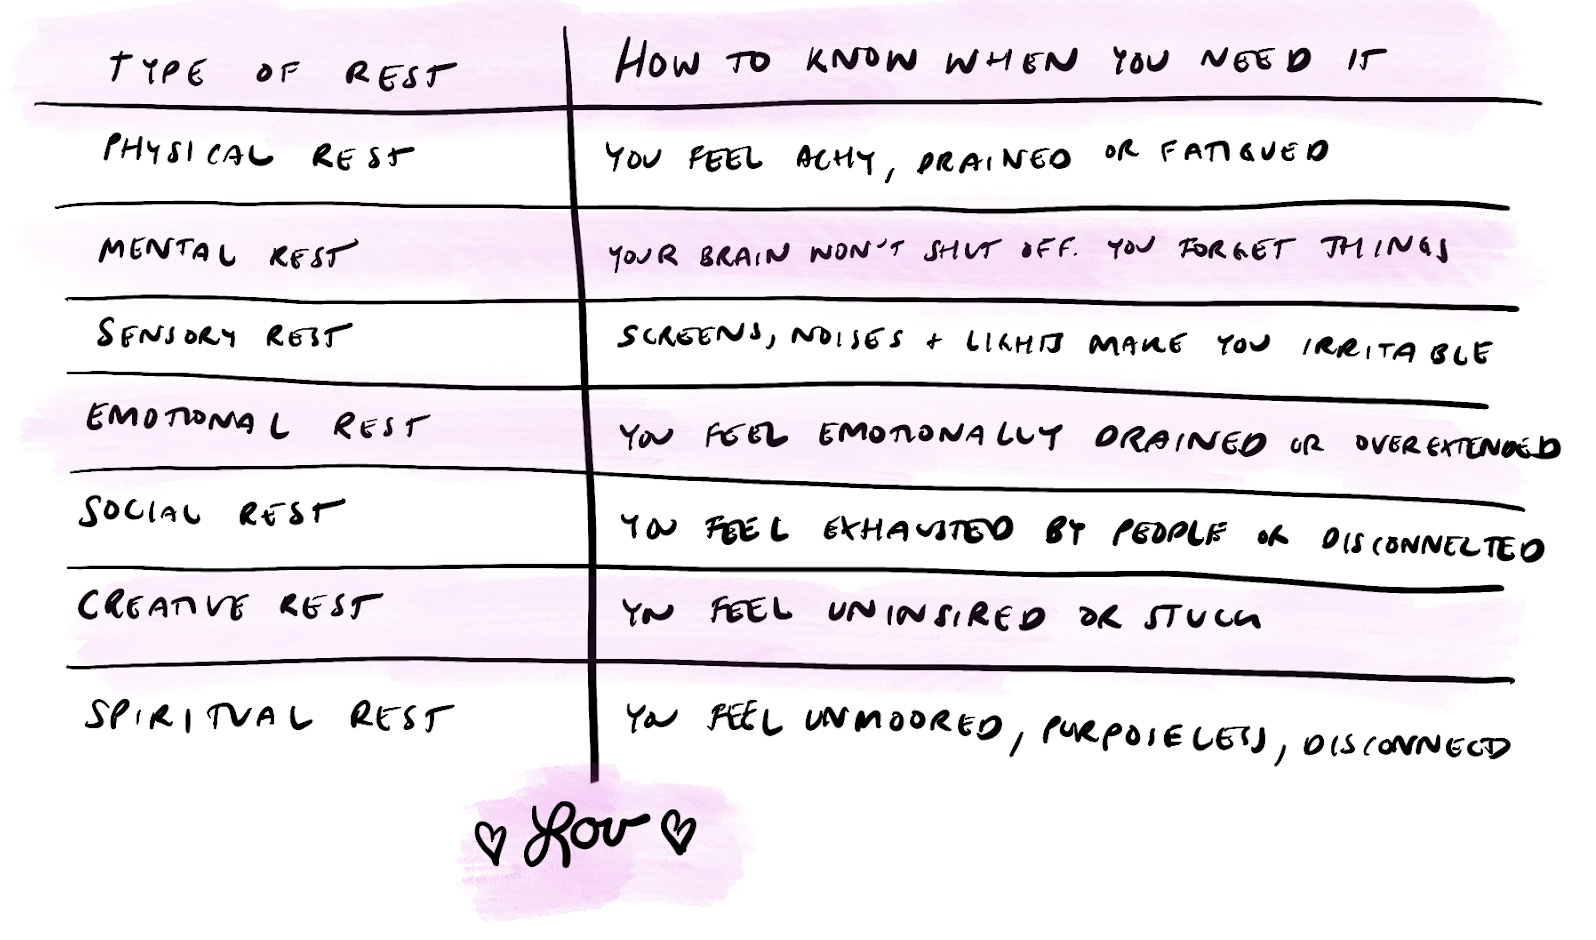 TYPE OF REST HOW TO KNOW WHEN YOU NEED IT
PHYSICAL REST YOU FEEL ACHY, DRAINED OR FATIGUED
MENTAL REST YOUR BRAIN WON'T SHUT OFF. YOU FORGET THINGS
SENSORY REST SCREENS, NOISES + LIGHTS MAKE YOU IRRITABLE
EMOTIONAL REST YOU FEEL EMOTIONALLY DRAINED OR OVEREXTENDED
SOCIAL REST YOU FEEL EXHAUSTED BY PEOPLE OR DISCONNECTED
CREATIVE REST YOU FEEL UNINSIRED OR STUCK
SPIRITUAL REST YOU FEEL UNMOORED, PURPOSELESS, DISCONNECD